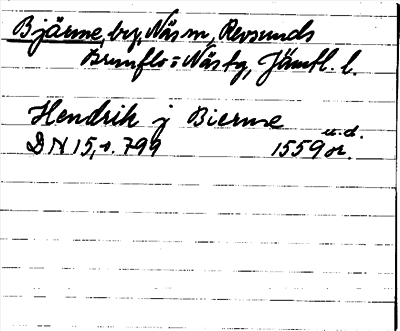 Bjärme, by, Näs sn, Revsunds
Brunflo = Näs tg, Jämtl. l.
Hendrik j Bierme
u.d.
DN 15, s. 799 1559 or.